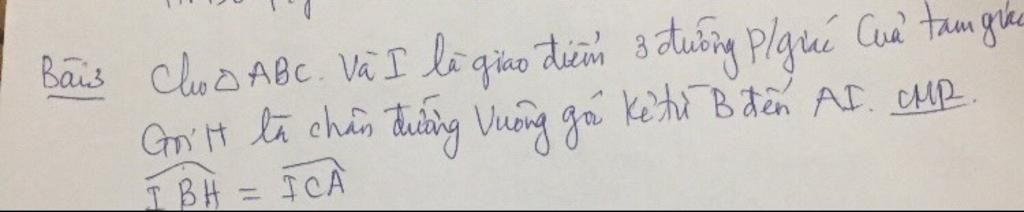 Bài 3 Cho △ABC. Và I là giao điểm 3 đường P/giác Của tam giác
Gọi H là chân đường Vuông góc kẻ từ B đến AI. CMR.
IBH = ICA